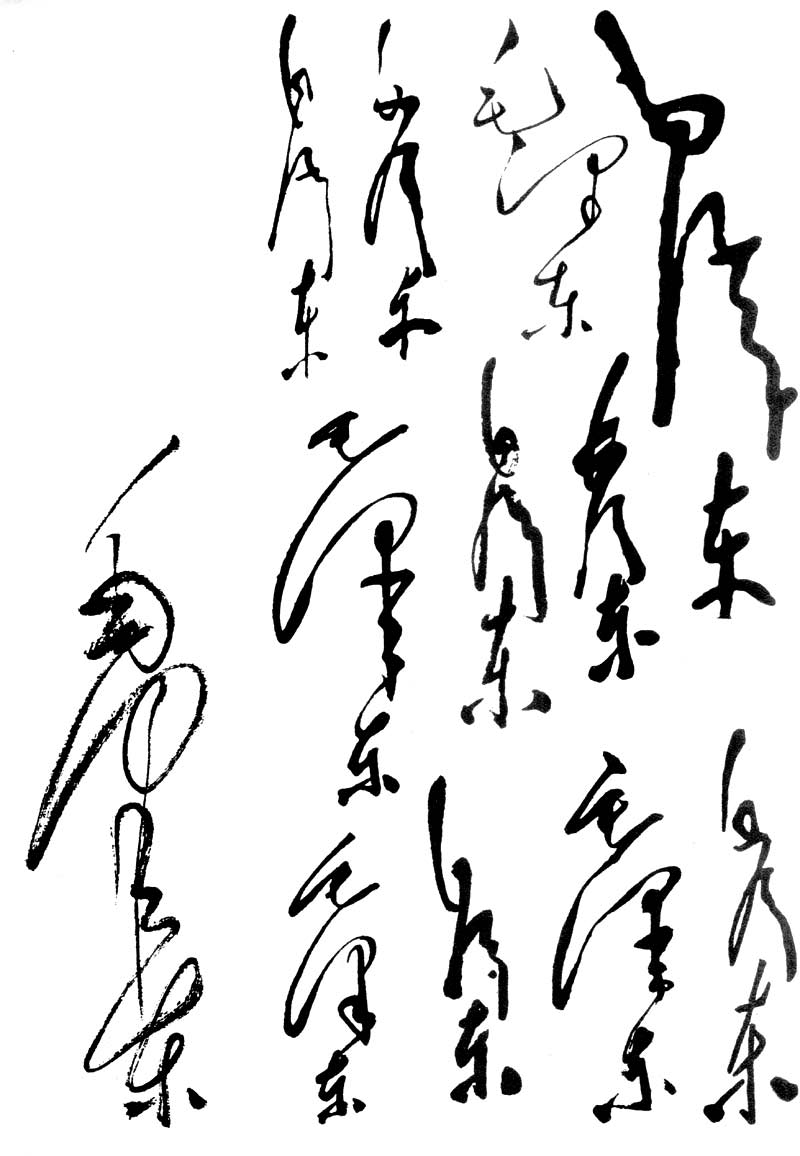 毛泽东
毛泽东
毛泽东
毛泽东
毛泽东
毛泽东
毛泽东
毛泽东
毛泽东
毛泽东
毛泽东
毛泽东